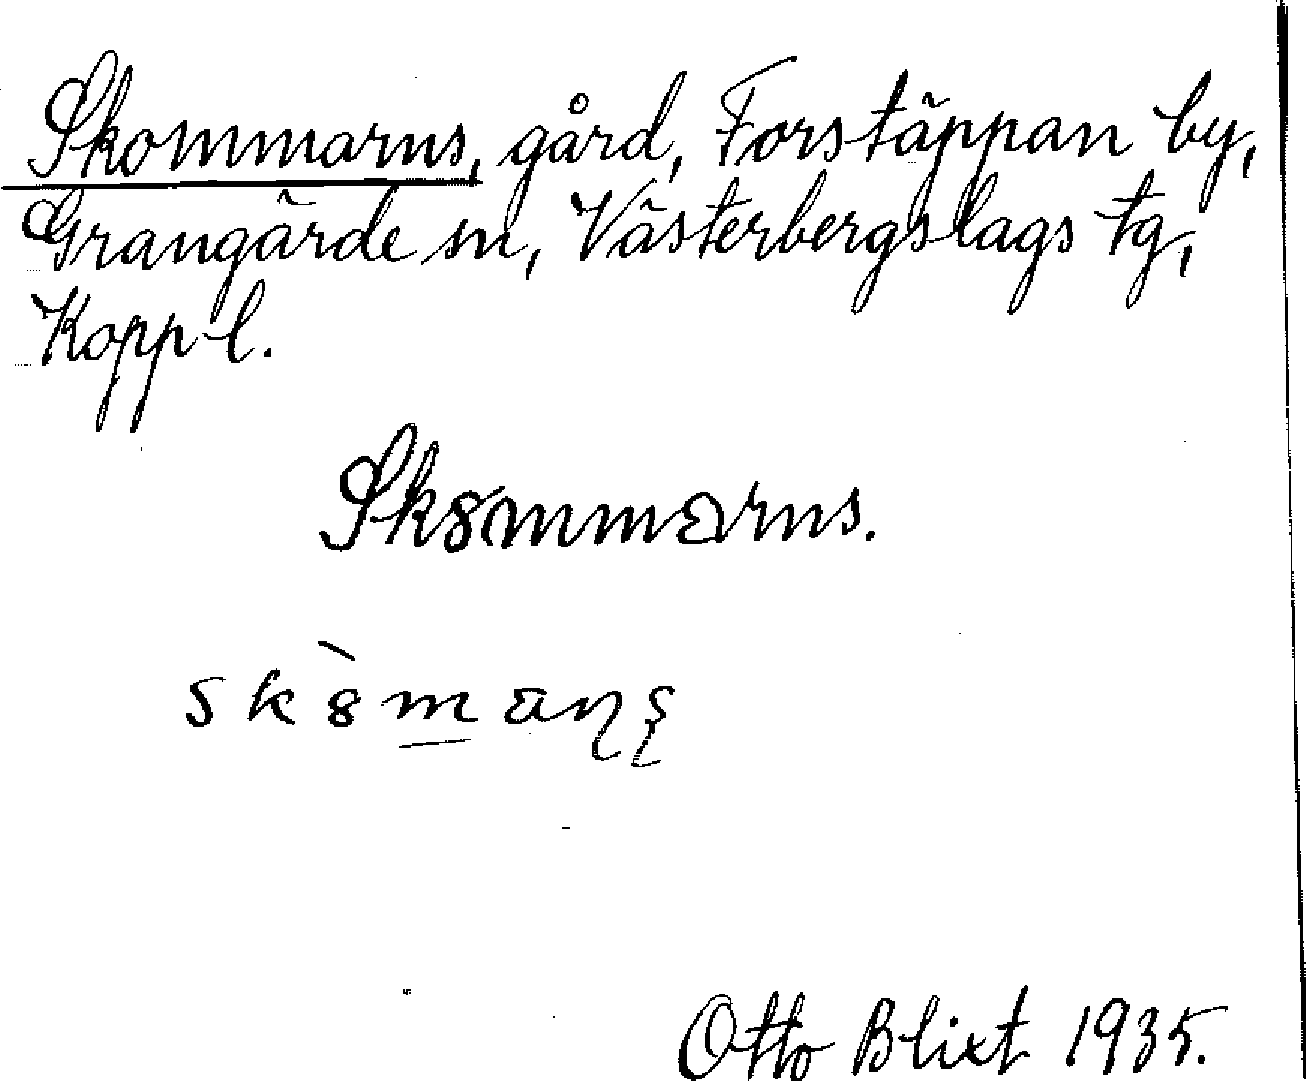 Skommarns, gård, Forstäppan by,
Grangärde sn, Västerbergslags tg,
Kopp l.
Skȣmmarns.
skȣ̀m̲aɳʂ
Otto Blixt 1935.